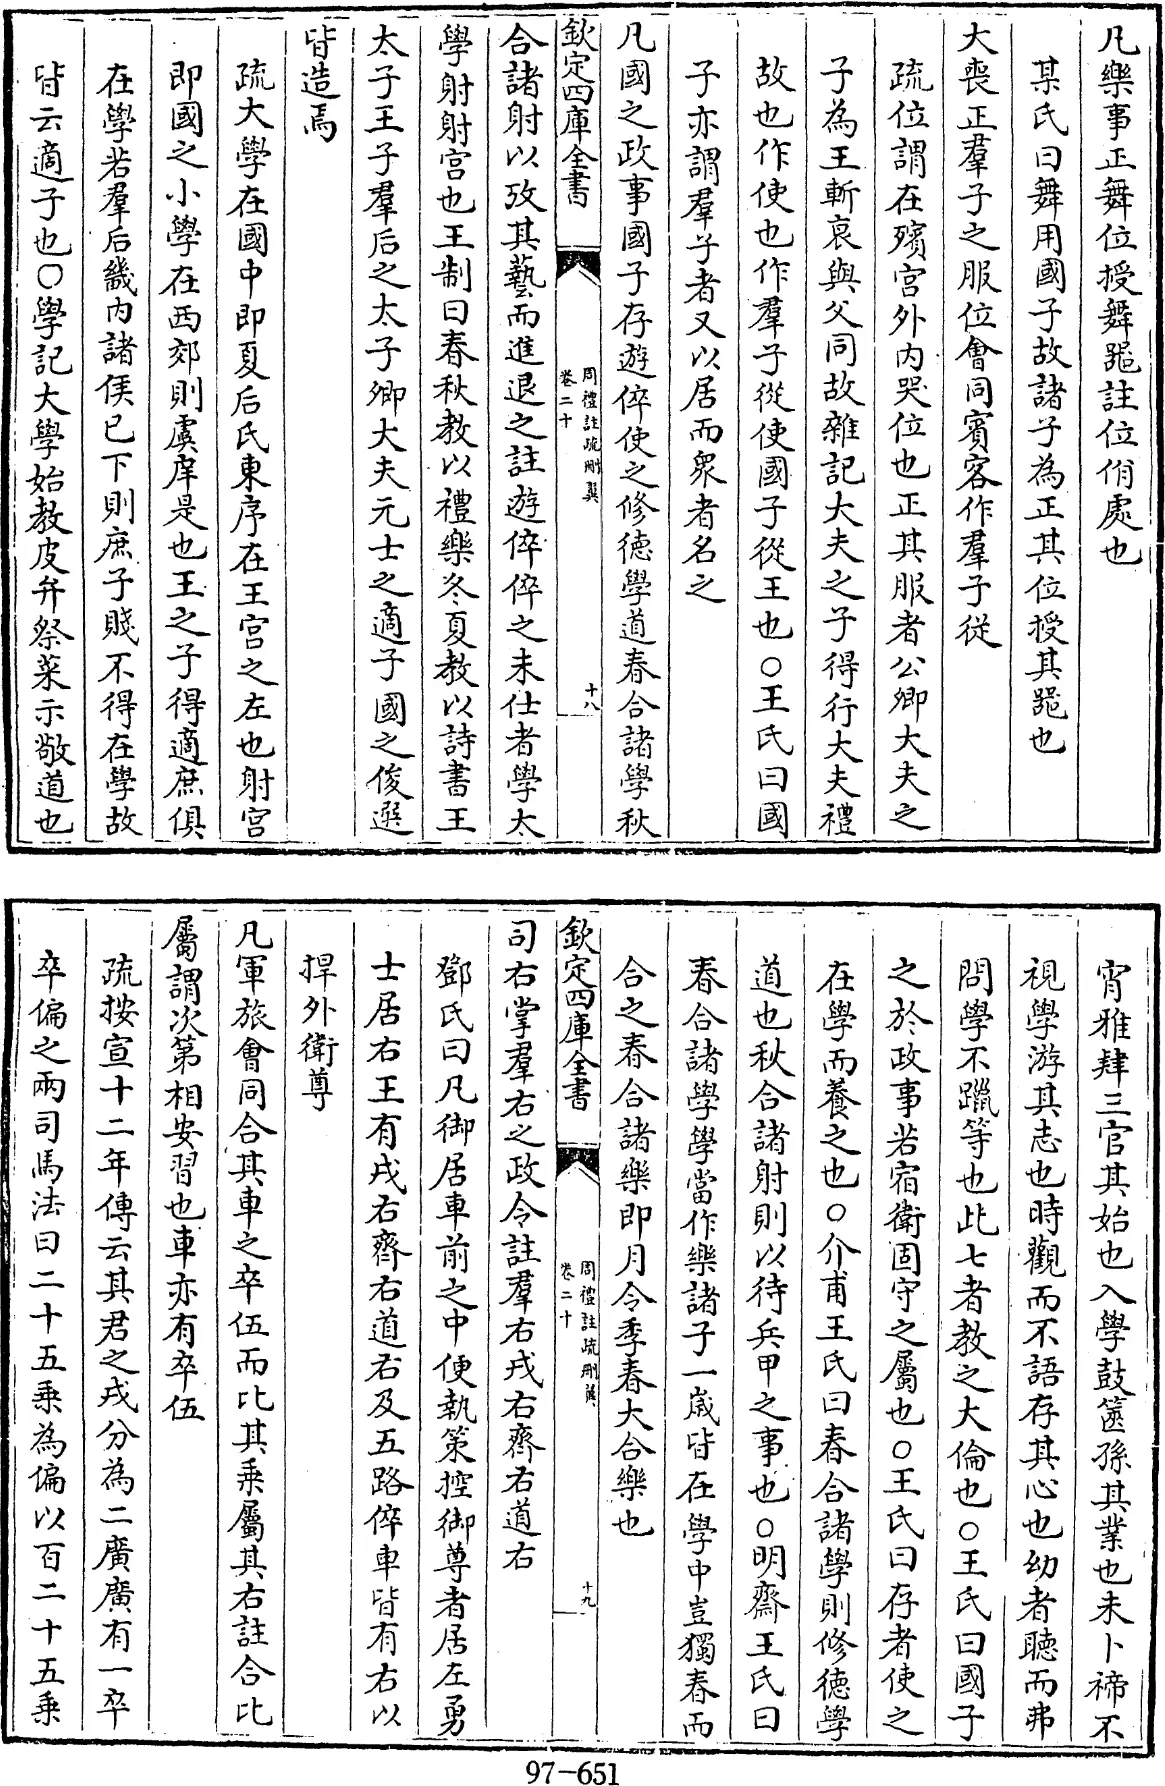 凡樂事正舞位授舞器註位佾處也
某氏曰舞用國子故諸子為正其位授其器也
大喪正羣子之服位㑹同賓客作羣子從
疏位謂在殯宫外内哭位也正其服者公卿大夫之
子為王斬衰與父同故雜記大夫之子得行大夫禮
故也作使也作羣子從使國子從王也○王氏曰國
子亦謂羣子者又以居而衆者名之
凡國之政事國子存遊倅使之修德學道春合諸學秋
欽定四庫全書
周禮註疏刪翼
卷二十
十八
合諸射以攷其藝而進退之註遊倅倅之未仕者學太
學射射宫也王制曰春秋教以禮樂冬夏教以詩書王
太子王子羣后之太子卿大夫元士之適子國之俊選
皆造焉
疏大學在國中即夏后氏東序在王宫之左也射宫
即國之小學在西郊則虞庠是也王之子得適庶俱
在學若羣后畿内諸侯已下則庶子賤不得在學故
皆云適子也○學記大學始教皮弁祭菜示敬道也
宵雅肄三官其始也入學鼓篋孫其業也未卜禘不
視學游其志也時觀而不語存其心也幼者聽而弗
問學不躐等也此七者教之大倫也○王氏曰國子
之於政事若宿衛固守之屬也○王氏曰存者使之
在學而養之也○介甫王氏曰春合諸學則修德學
道也秋合諸射則以待兵甲之事也○明齋王氏曰
春合諸學學當作樂諸子一歳皆在學中豈獨春而
合之春合諸樂即月令季春大合樂也
欽定四庫全書
周禮註疏刪翼
卷二十
十九
司右掌羣右之政令註羣右戎右齊右道右
鄧氏曰凡御居車前之中便執策控御尊者居左勇
士居右王有戎右齊右道右及五路倅車皆有右以
捍外衛尊
凡軍旅會同合其車之卒伍而比其乘屬其右註合比
屬謂次第相安習也車亦有卒伍
疏按宣十二年傳云其君之戎分為二廣廣有一卒
卒偏之兩司馬法曰二十五乘為偏以百二十五乘
97-651